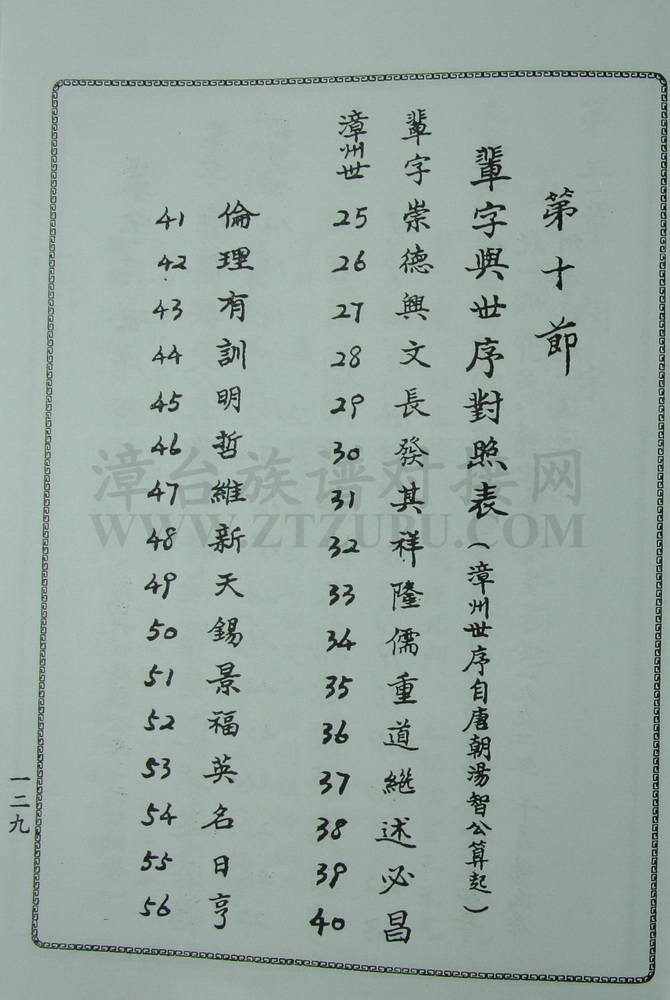 第十節
輩字與世序對照表(漳州世序自唐朝湯智公算起)
輩字崇德興文長發其祥隆儒重道繼述必昌
漳州世 25 26 27 28 29 30 31 32 33 34 35 36 37 38 39 40
倫理有訓明哲維新天錫景福英名日亨
41 42 43 44 45 46 47 48 49 50 51 52 53 54 55 56
一二九
漳台族谱对接网
WWW.ZTZUPU.COM